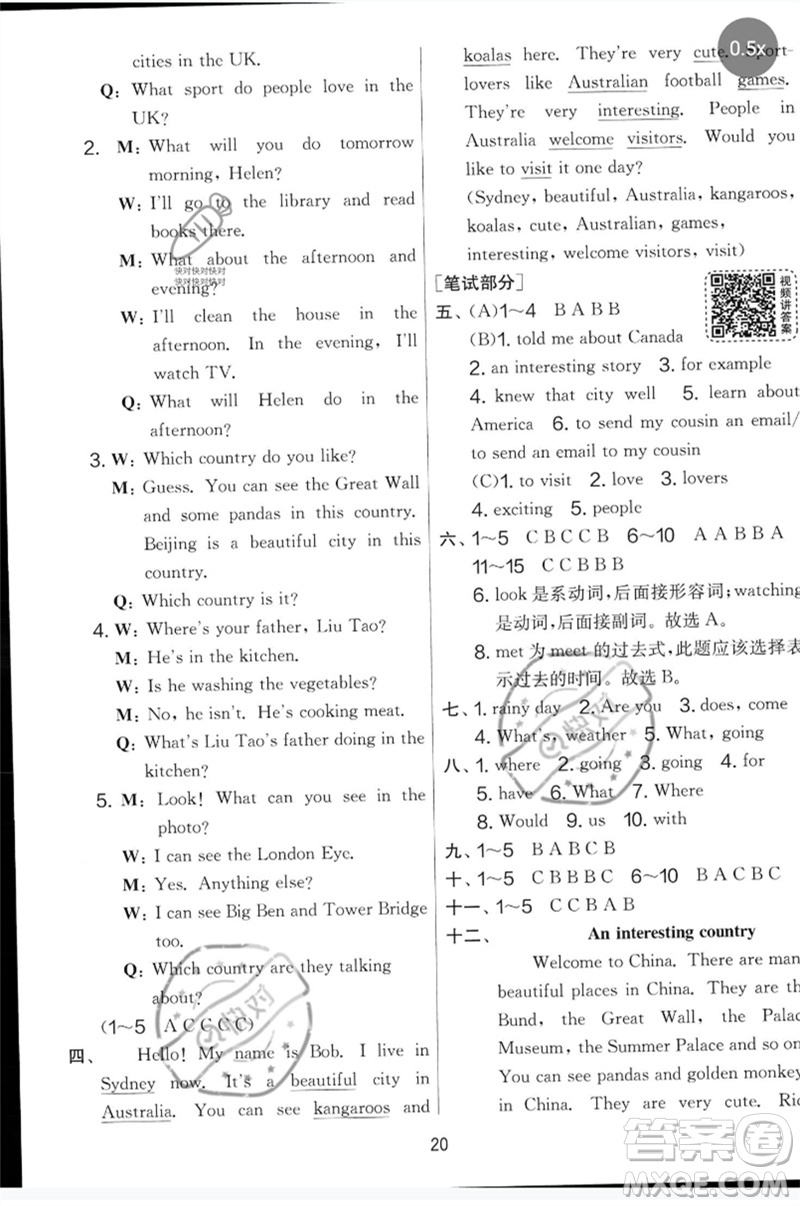 cities in the UK.
Q: What sport do people love in the
UK?
2. M: What will you do tomorrow
morning, Helen?
W: I'll go to the library and read
books there.
M: What about the afternoon and
evening?
快对快对快对
快对快对快对
W: I'll clean the house in the
afternoon. In the evening, I'll
watch TV.
Q: What will Helen do in the
afternoon?
3. W: Which country do you like?
M: Guess. You can see the Great Wall
and some pandas in this country.
Beijing is a beautiful city in this
country.
Q: Which country is it?
4. W: Where's your father, Liu Tao?
M: He's in the kitchen.
W: Is he washing the vegetables?
M: No, he isn't. He's cooking meat.
Q: What's Liu Tao's father doing in the
kitchen?
5. M: Look! What can you see in the
photo?
W: I can see the London Eye.
M: Yes. Anything else?
W: I can see Big Ben and Tower Bridge
too.
Q: Which country are they talking
about?
(1～5 A C C C C)
四、 Hello! My name is Bob. I live in
Sydney now. It's a beautiful city in
Australia. You can see kangaroos and
koalas here. They're very cute. Sport-
lovers like Australian football games.
They're very interesting. People in
Australia welcome visitors. Would you
like to visit it one day?
(Sydney, beautiful, Australia, kangaroos,
koalas, cute, Australian, games,
interesting, welcome visitors, visit)
[笔试部分]
五、(A)1～4 B A B B
(B)1. told me about Canada
2. an interesting story 3. for example
4. knew that city well 5. learn about
America 6. to send my cousin an email/
to send an email to my cousin
(C)1. to visit 2. love 3. lovers
4. exciting 5. people
六、1～5 C B C C B 6～10 A A B B A
11～15 C C B B B
6. look 是系动词,后面接形容词;watching
是动词,后面接副词。故选 A。
8. met 为 meet 的过去式,此题应该选择表
示过去的时间。故选 B。
七、1. rainy day 2. Are you 3. does, come
4. What's, weather 5. What, doing
八、1. where 2. going 3. going 4. for
5. have 6. What 7. Where
8. Would 9. us 10. with
九、1～5 B A B C B
十、1～5 C B B B C 6～10 B A C B C
十一、1～5 C C B A B
十二、 An interesting country
Welcome to China. There are man
beautiful places in China. They are
Bund, the Great Wall, the Palac
Museum, the Summer Palace and so on
You can see pandas and golden monkey
in China. They are very cute. Ric
视频讲答案
0.5x
快对
快对
20
答案圈
MXQE.COM